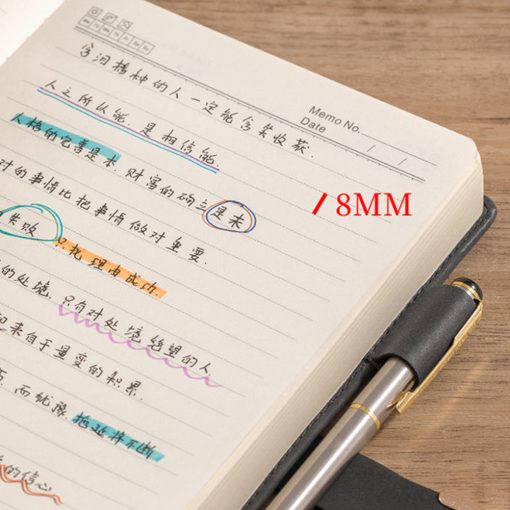 Memo No.
Date / /
含泪播种的人一定能含笑收获.
人之所以能, 是相信能.
人格的完善是本, 财富的确立是末
对的事情比把事情做对重要.
8MM
失败 只找理由成功.
的处境, 只有对处境绝望的人
来自于量变的积累.
而犹豫, 拖延并不断
的信心